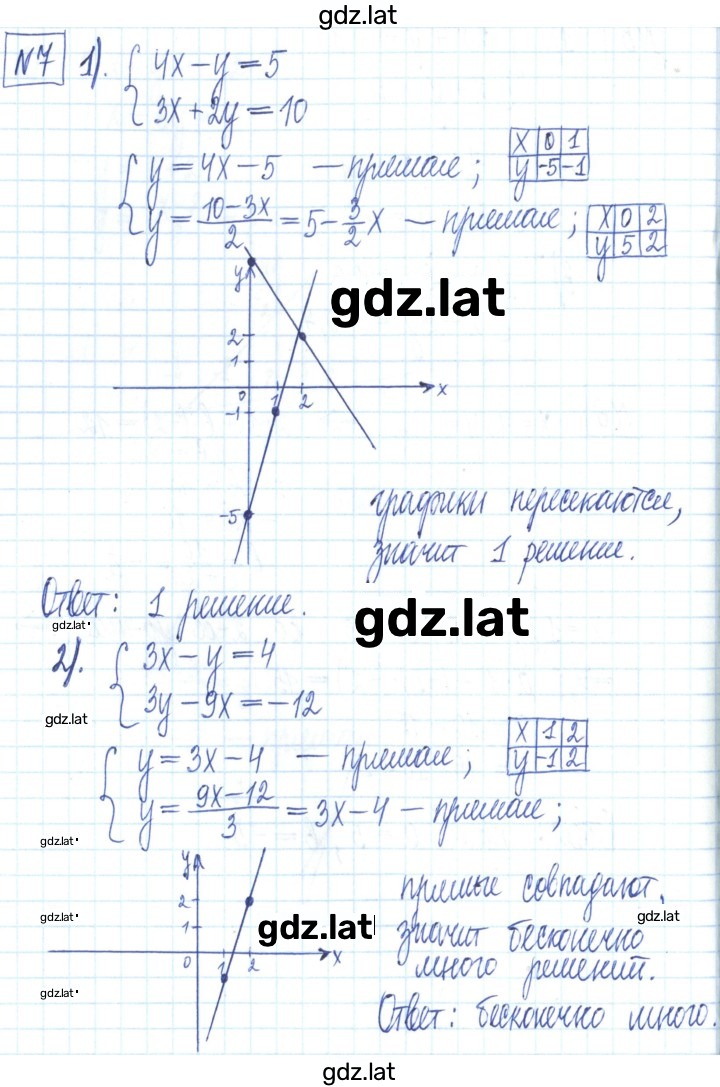 gdz.lat
№7 1). { 4x − y = 5
3x + 2y = 10
{ y = 4x − 5 — прямая; x 0 1
y -5 -1
y = (10−3x)/2 = 5 − 3/2 x — прямая; x 0 2
y 5 2
y
gdz.lat
2
1
0 1 2 x
-1
-5
графики пересекаются,
значит 1 решение.
Ответ: 1 решение.
gdz.lat
gdz.lat
2). { 3x − y = 4
3y − 9x = −12
gdz.lat
{ y = 3x − 4 — прямая; x 1 2
y -1 2
y = (9x−12)/3 = 3x − 4 — прямая;
gdz.lat
y
2
1
0 1 2 x
прямые совпадают,
gdz.lat
gdz.lat
gdz.lat
значит бесконечно
много решений.
gdz.lat
Ответ: бесконечно много.
gdz.lat